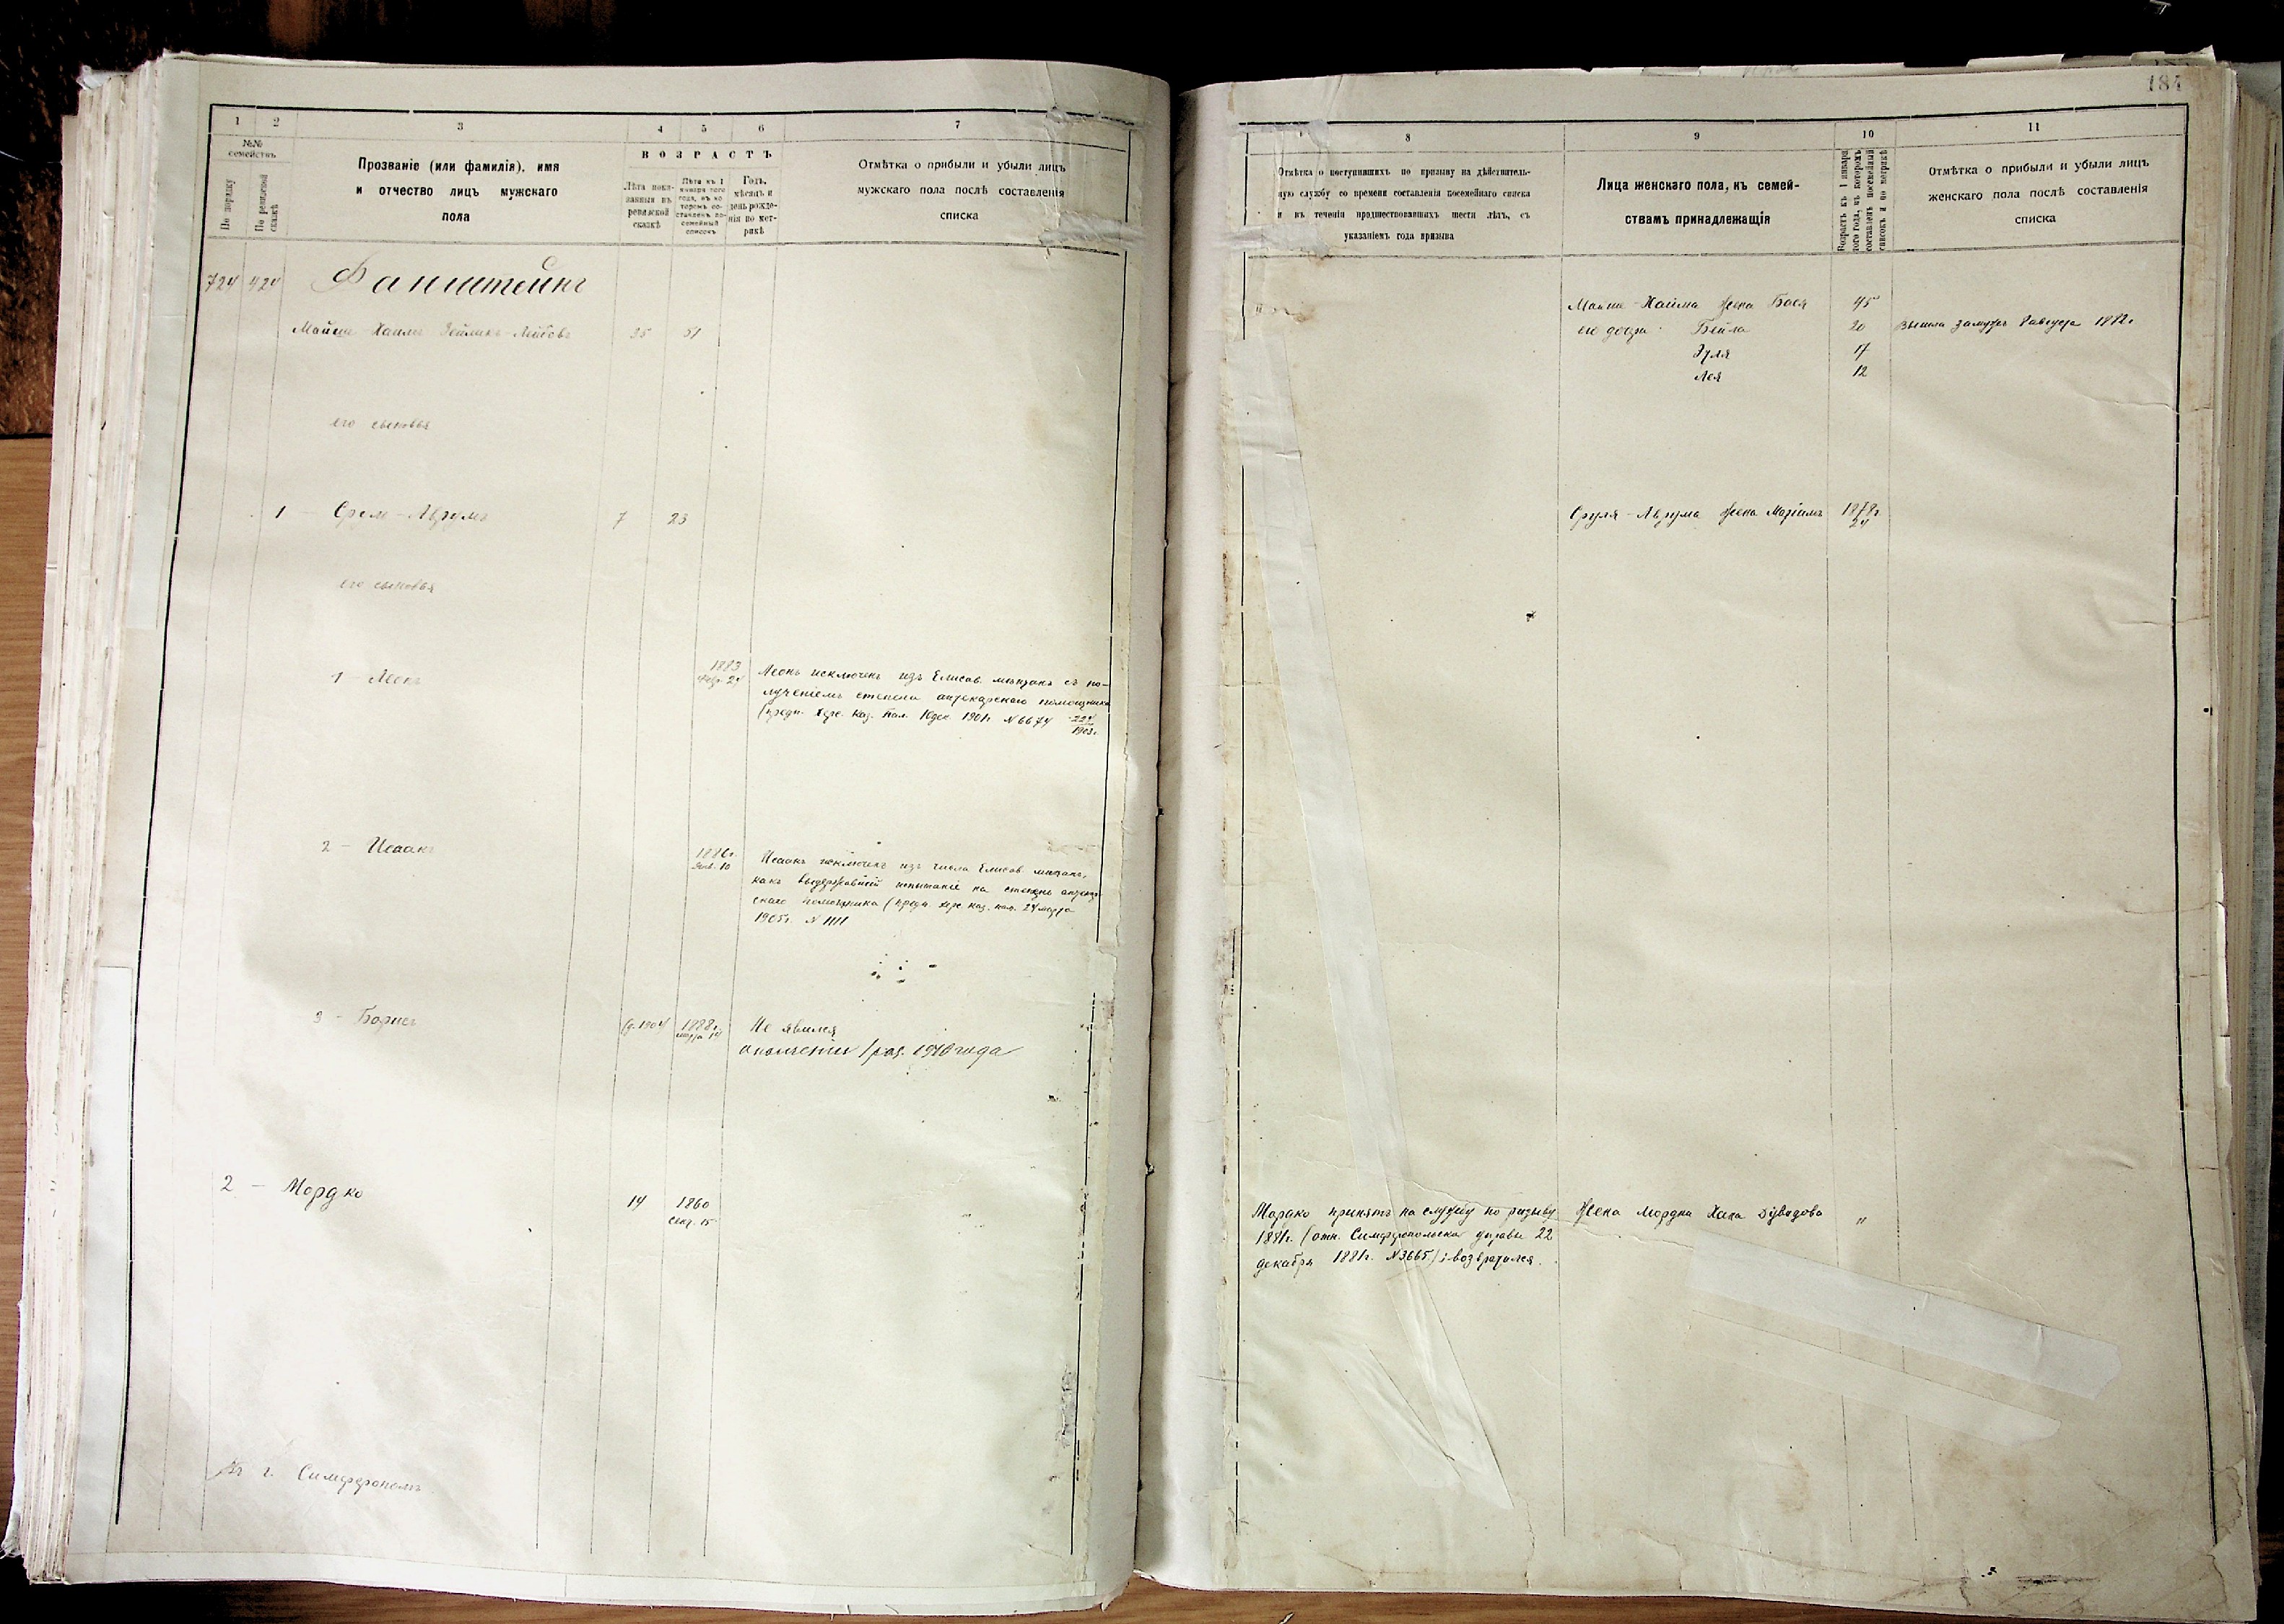 184
1 2 3 4 5 6 7
№№ семействъ
По порядку
По ревизской сказкѣ
Прозваніе (или фамилія), имя
и отчество лицъ мужскаго
пола
ВОЗРАСТЪ
Лѣта пока-
занныя въ
ревизской
сказкѣ
Лѣта къ 1
января того
года, въ ко-
торомъ со-
ставленъ по-
семейный
списокъ
Годъ,
мѣсяцъ и
день рожде-
нія по мет-
рикѣ
Отмѣтка о прибыли и убыли лицъ
мужскаго пола послѣ составленія
списка
724 424
Майше Хаимъ Лейбовъ 35 51
его сыновья
1 - Аврумъ 7 23
его сыновья
1 - Леонъ 1883
Леонъ исключенъ изъ Елисав. мѣщанъ съ по-
лученіемъ степени аптекарскаго помощника
(предп. Херс. Каз. Пал. 10 дек. 1901г. № 6674 224
1903г.
2 - Исаакъ 1886г.
янв. 10
Исаакъ исключенъ изъ числа Елисав. мѣщанъ,
какъ выдержавшій испытаніе на степень аптекар-
скаго помощника (предп. Херс. каз. пал. 24 марта
1905г. № 1111
3 - Борисъ 1888г.
марта 14
Не явился
1910 года
2 - Мордко 14 1860
сент. 15
г. Симферополь
8 9 10 11
Отмѣтка о поступившихъ по призыву на дѣйствитель-
ную службу со времени составленія посемейнаго списка
и въ теченіи предшествовавшихъ шести лѣтъ, съ
указаніемъ года призыва
Лица женскаго пола, къ семей-
ствамъ принадлежащія
Возрастъ къ 1 января
того года, въ которомъ
составленъ посемейный
списокъ и по метрикѣ
Отмѣтка о прибыли и убыли лицъ
женскаго пола послѣ составленія
списка
Майше-Хаима жена Бася 45
его дочери: Бейла 20 Вышла замужъ 8 августа 1882г.
17
Лея 12
Сруля-Аврума жена 1878г.
24
Мордко принятъ на службу по призыву
1881г. (отн. Симферопольской управы 22
декабря 1881г. № 3665); возвратился.
Жена Мордки Хана Дувидова "